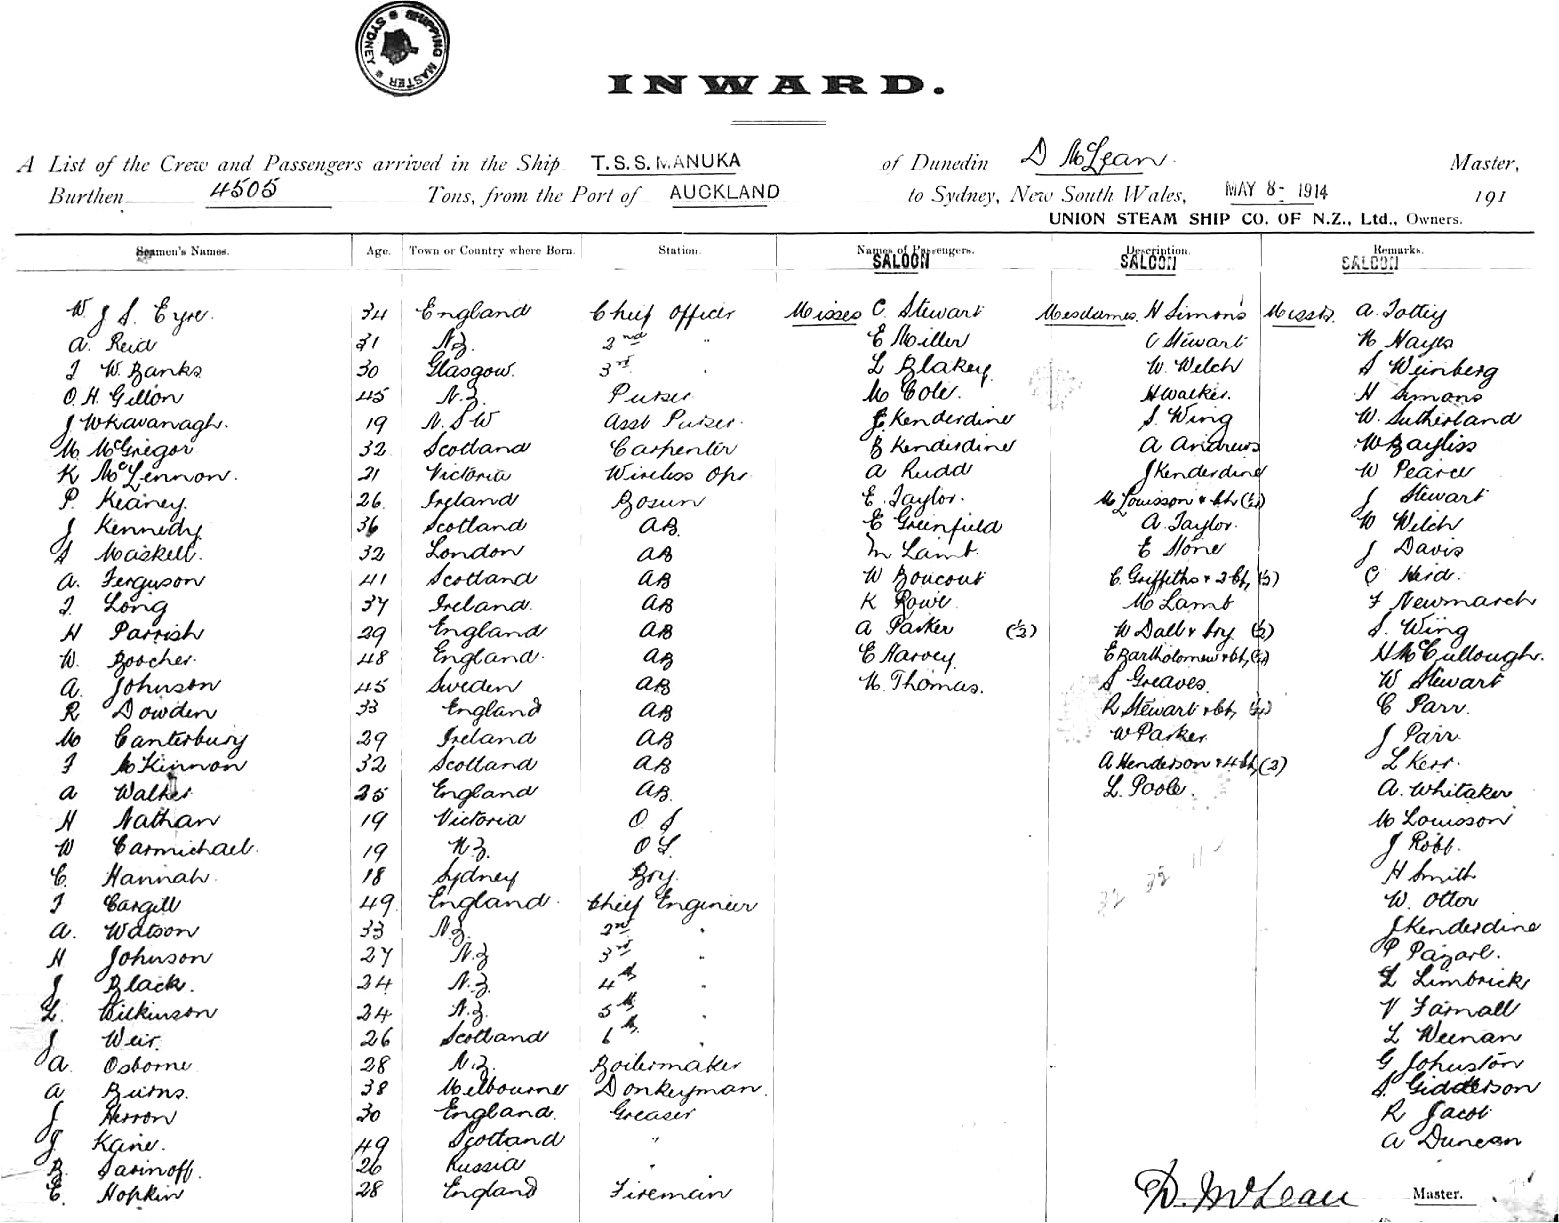 SHIPPING MASTER * SYDNEY *
INWARD.
A List of the Crew and Passengers arrived in the Ship T.S.S. MANUKA of Dunedin D McLean Master,
Burthen 4505 Tons, from the Port of AUCKLAND to Sydney, New South Wales, MAY 8- 1914 191
UNION STEAM SHIP CO. OF N.Z., Ltd., Owners.
Seamen's Names. Age. Town or Country where Born. Station. Names of Passengers. Description. Remarks.
SALOON SALOON SALOON
W J S Eyre. 34 England Chief Officer Misses C. Stewart Mesdames. H Simons Messrs. A. Tottey
A. Reid 31 N.Z. 2nd " E Miller C Stewart N Hayes
J W. Banks 30 Glasgow. 3rd . L Blakey W. Welch S Weinberg
O. H. Gillon 45 N.Z. Purser M Cole. H Walker. H Simons
J W Kavanagh. 19 N.S.W Asst Purser. J. Kenderdine S. Wing W. Sutherland
M. McGregor 32 Scotland Carpenter B Kenderdine A Andrews W Bayliss
K McLennon. 21 Victoria Wireless Opr. A Rudd J Kenderdine W Pearce
P. Keaney. 26 Ireland Bosun E. Taylor. M Louisson & ch (½) J Stewart
J Kennedy 36 Scotland AB. E Greenfield A. Taylor. W Welch
S Maskell. 32 London AB M Lamb. E Stone J Davis
A. Ferguson 41 Scotland AB W Boucout C. Griffiths & 2 ch, (½) C Heid.
J. Long 37 Ireland. AB K Rowe M Lamb F Newmarch
H Parrish 29 England AB A Parker (½) W Dall & bry (½) S. Wing
W. Boocher. 48 England. AB C Harvey. E Bartholomew & ch, H McCullough.
A. Johnson 45 Sweden AB M. Thomas. S Greaves. W Stewart
R Dowden 33 England AB R Stewart & ch, C Parr.
M Canterbury 29 Ireland AB W Parker. J Parr
J McKinnon 32 Scotland AB A Henderson & 4 ch, (2) L Kerr.
A Walker 25 England AB. L. Poole. A. Whitaker
H Nathan 19 Victoria O S M Louisson
W Carmichael. 19 N.Z. O S. J Robb.
C. Hannah. 18 Sydney Boy. H Smith
J Cargill 49 England. Chief Engineer W. Otton
A. Watson 33 N.Z. 2nd . J Kenderdine
H Johnson 27 N.Z 3rd . P Pazarl.
J Black. 24 N.Z. 4th . L Limbrick
L. Wilkinson 24 N.Z. 5th . V Farnall
J Weir. 26 Scotland 6th . L Weenan
A. Osborne 28 N.Z. Boilermaker G Johnston
A Burns. 38 Melbourne Donkeyman. S. Gidderson
J Herron 30 England. Greaser R Jacob
J Kane. 49 Scotland " A Duncan
B. Sarinoff. 26 Russia .
E. Hopkin 28 England Fireman D. McLean Master.
32 32 11